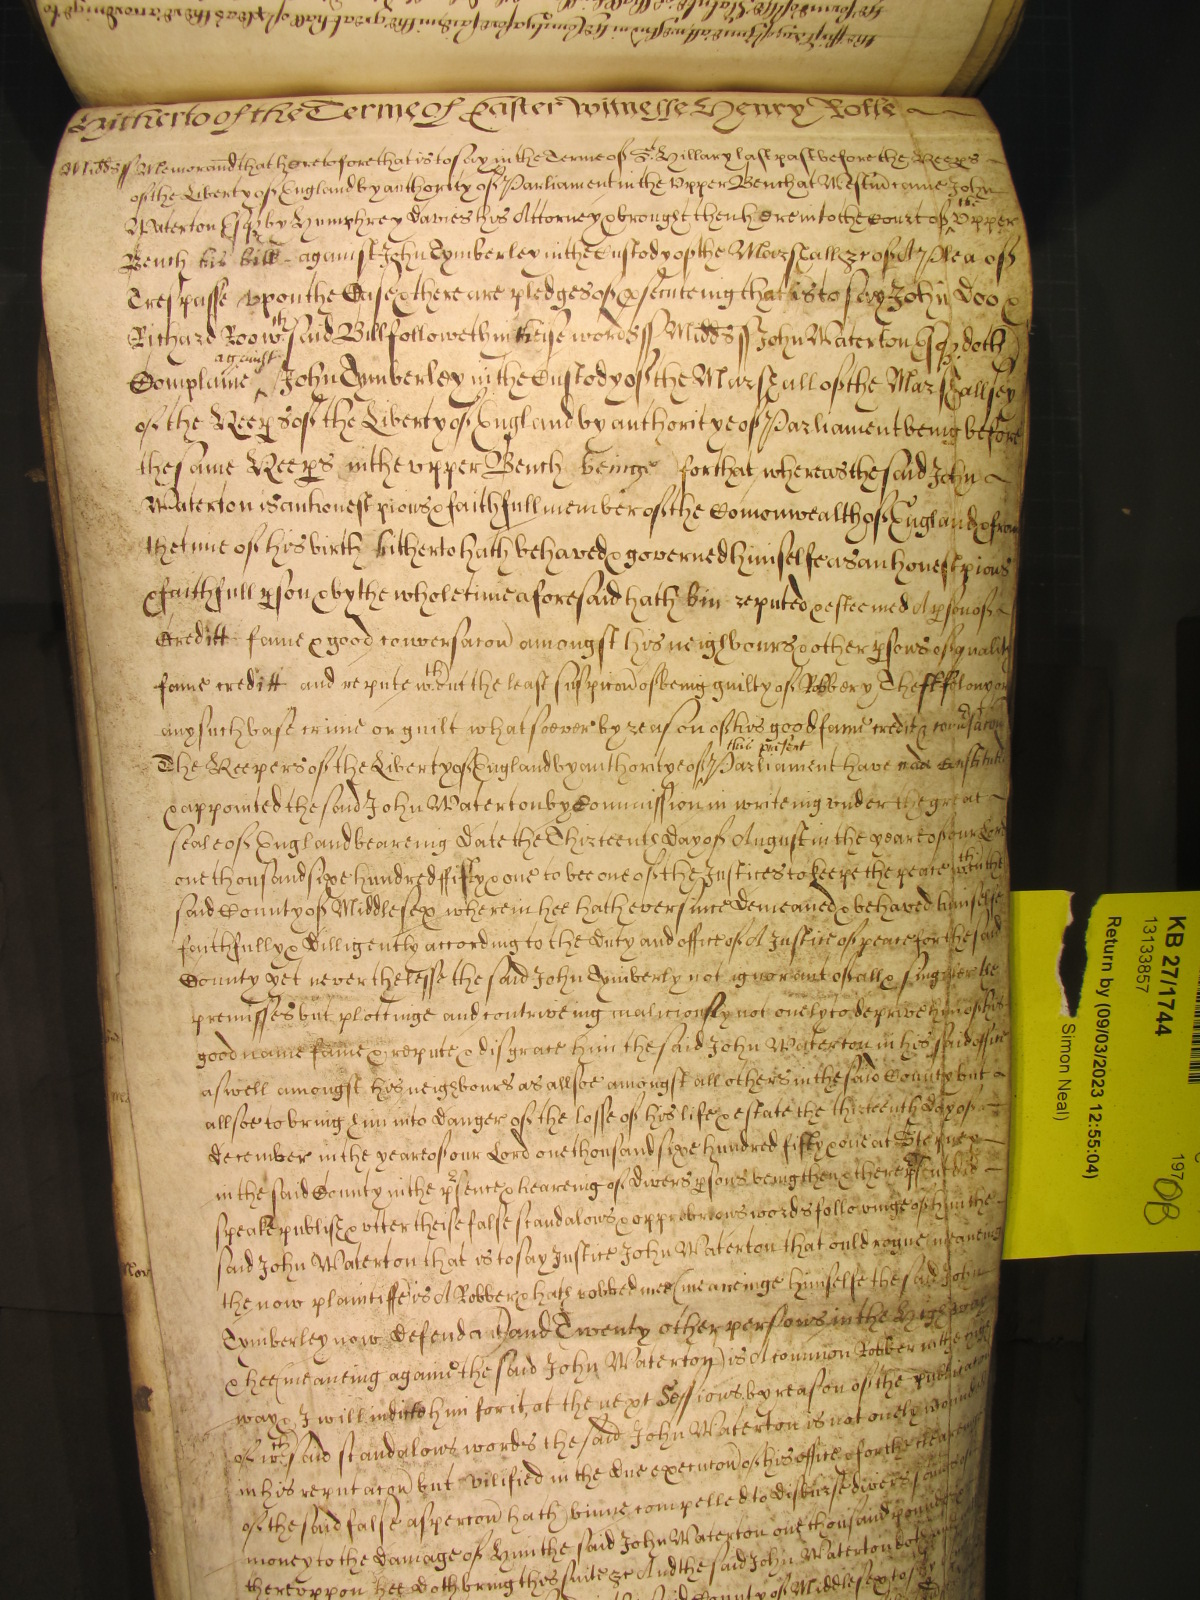 Hitherto of the Terme of Easter Witnesse Henry Rolle
Midds ss Memorand that heretofore that is to say in the Terme of St. Hillary last past before the Keeps
of the Liberty of England by authority of Parliament in the Upper Bench at Westm came John
Waterton Esqr by Humphrey Davies his Attorney & brought then here into the Court of the Upper
Bench his bill against John Tymberley in the Custody of the Marshall &c of A Plea of
Trespasse upon the Case & there are pledges of psecuteing that is to say John Doo &
Richard Roo wch said Bill followeth in theise words ss Midds ss John Waterton Esqr doth
Complaine against John Tymberley in the Custody of the Marshall of the Marshallsey
of the Keeps of the Liberty of England by authoritye of Parliament being before
the same Keeps in the upper Bench beinge for that whereas the said John
Waterton is an honest pious & faithfull member of the Comonwealth of England & from
the time of his birth hitherto hath behaved & governed himselfe as an honest pious
& faithfull pson & by the whole time aforesaid hath bin reputed & esteemed A pson of
Creditt fame & good conversacon amongst his neighbours & other psons of quality
fame creditt and repute wthout the least suspicon of being guilty of Robbery Theft felony or
any such base crime or guilt whatsoever by reason of his good fame credit & conversacon
The Keepers of the Liberty of England by authoritye of this present Parliament have constituted
& appointed the said John Waterton by Commission in writeing under the great
seale of England beareing date the Thirteenth day of August in the yeare of our Lord
one thousand sixe hundred fifty & one to bee one of the Justices to keepe the peace wthin the
said County of Middlesex wherein hee hath ever since demeaned & behaved himselfe
faithfully & dilligently according to the duty and office of A Justice of peace for the said
County yet never the lesse the said John Tymberly not ignorant of all & singuler the
premisses but plottinge and contriveing maliciously not onely to deprive him of his
good name fame & repute & disgrace him the said John Waterton in his said office
as well amongst his neighbours as allsoe amongst all others in the said County but
allsoe to bring him into danger of the losse of his life & estate the thirteenth day of
december in the yeare of our Lord one thousand sixe hundred fifty & one at Stepney
in the said County in the psence & heareing of divers psons being then & there psent did
speake publish & utter theise false scandalows & opprobriows words followinge of him the
said John Waterton that is to say Justice John Waterton that ould rogue meaneing
the now plaintiffe is A Robber & hath robbed mee (meaneinge himselfe the said John
Tymberley now defendant) and Twenty other persons in the High way
& hee (meaneing againe the said John Waterton) is A comon Robber in the high
way & I will indict him for it at the next Sessions by reason of the publicacon
of wch said scandalows words the said John Waterton is not onely wounded
in his reputacon but vilified in the due execucon of his office & for the cleareing
of the said false aspercon hath binne compelled to disburse divers somes of
money to the damage of him the said John Waterton one thousand pounds
thereuppon hee doth bring this suite &c And the said John Waterton doth
County of Middlesex to
Nov
KB 27/1744
13133857
Return by (09/03/2023 12:55:04)
Simon Neal)